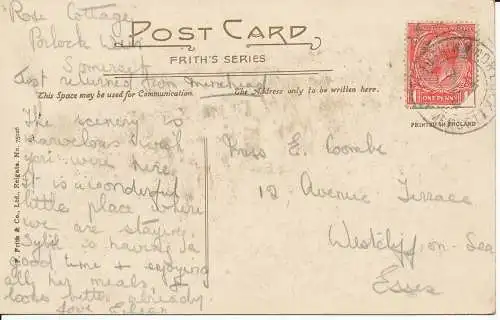 "Rose Cottage"
Porlock Weir
Somerset
Just returned from Minehead
POST CARD
FRITH'S SERIES
This Space may be used for Communication.
The Address only to be written here.
ONE PENNY
PRINTED IN ENGLAND
The scenery is
marvelous wish
you were here.
It is a wonderful
little place where
we are staying.
Sybil is having a
good time & enjoying
all her meals, &
looks better already.
love Eileen
Miss E. Coombe
12 Avenue Terrace
Westcliff-on-Sea
Essex
F. Frith & Co., Ltd., Reigate. No.